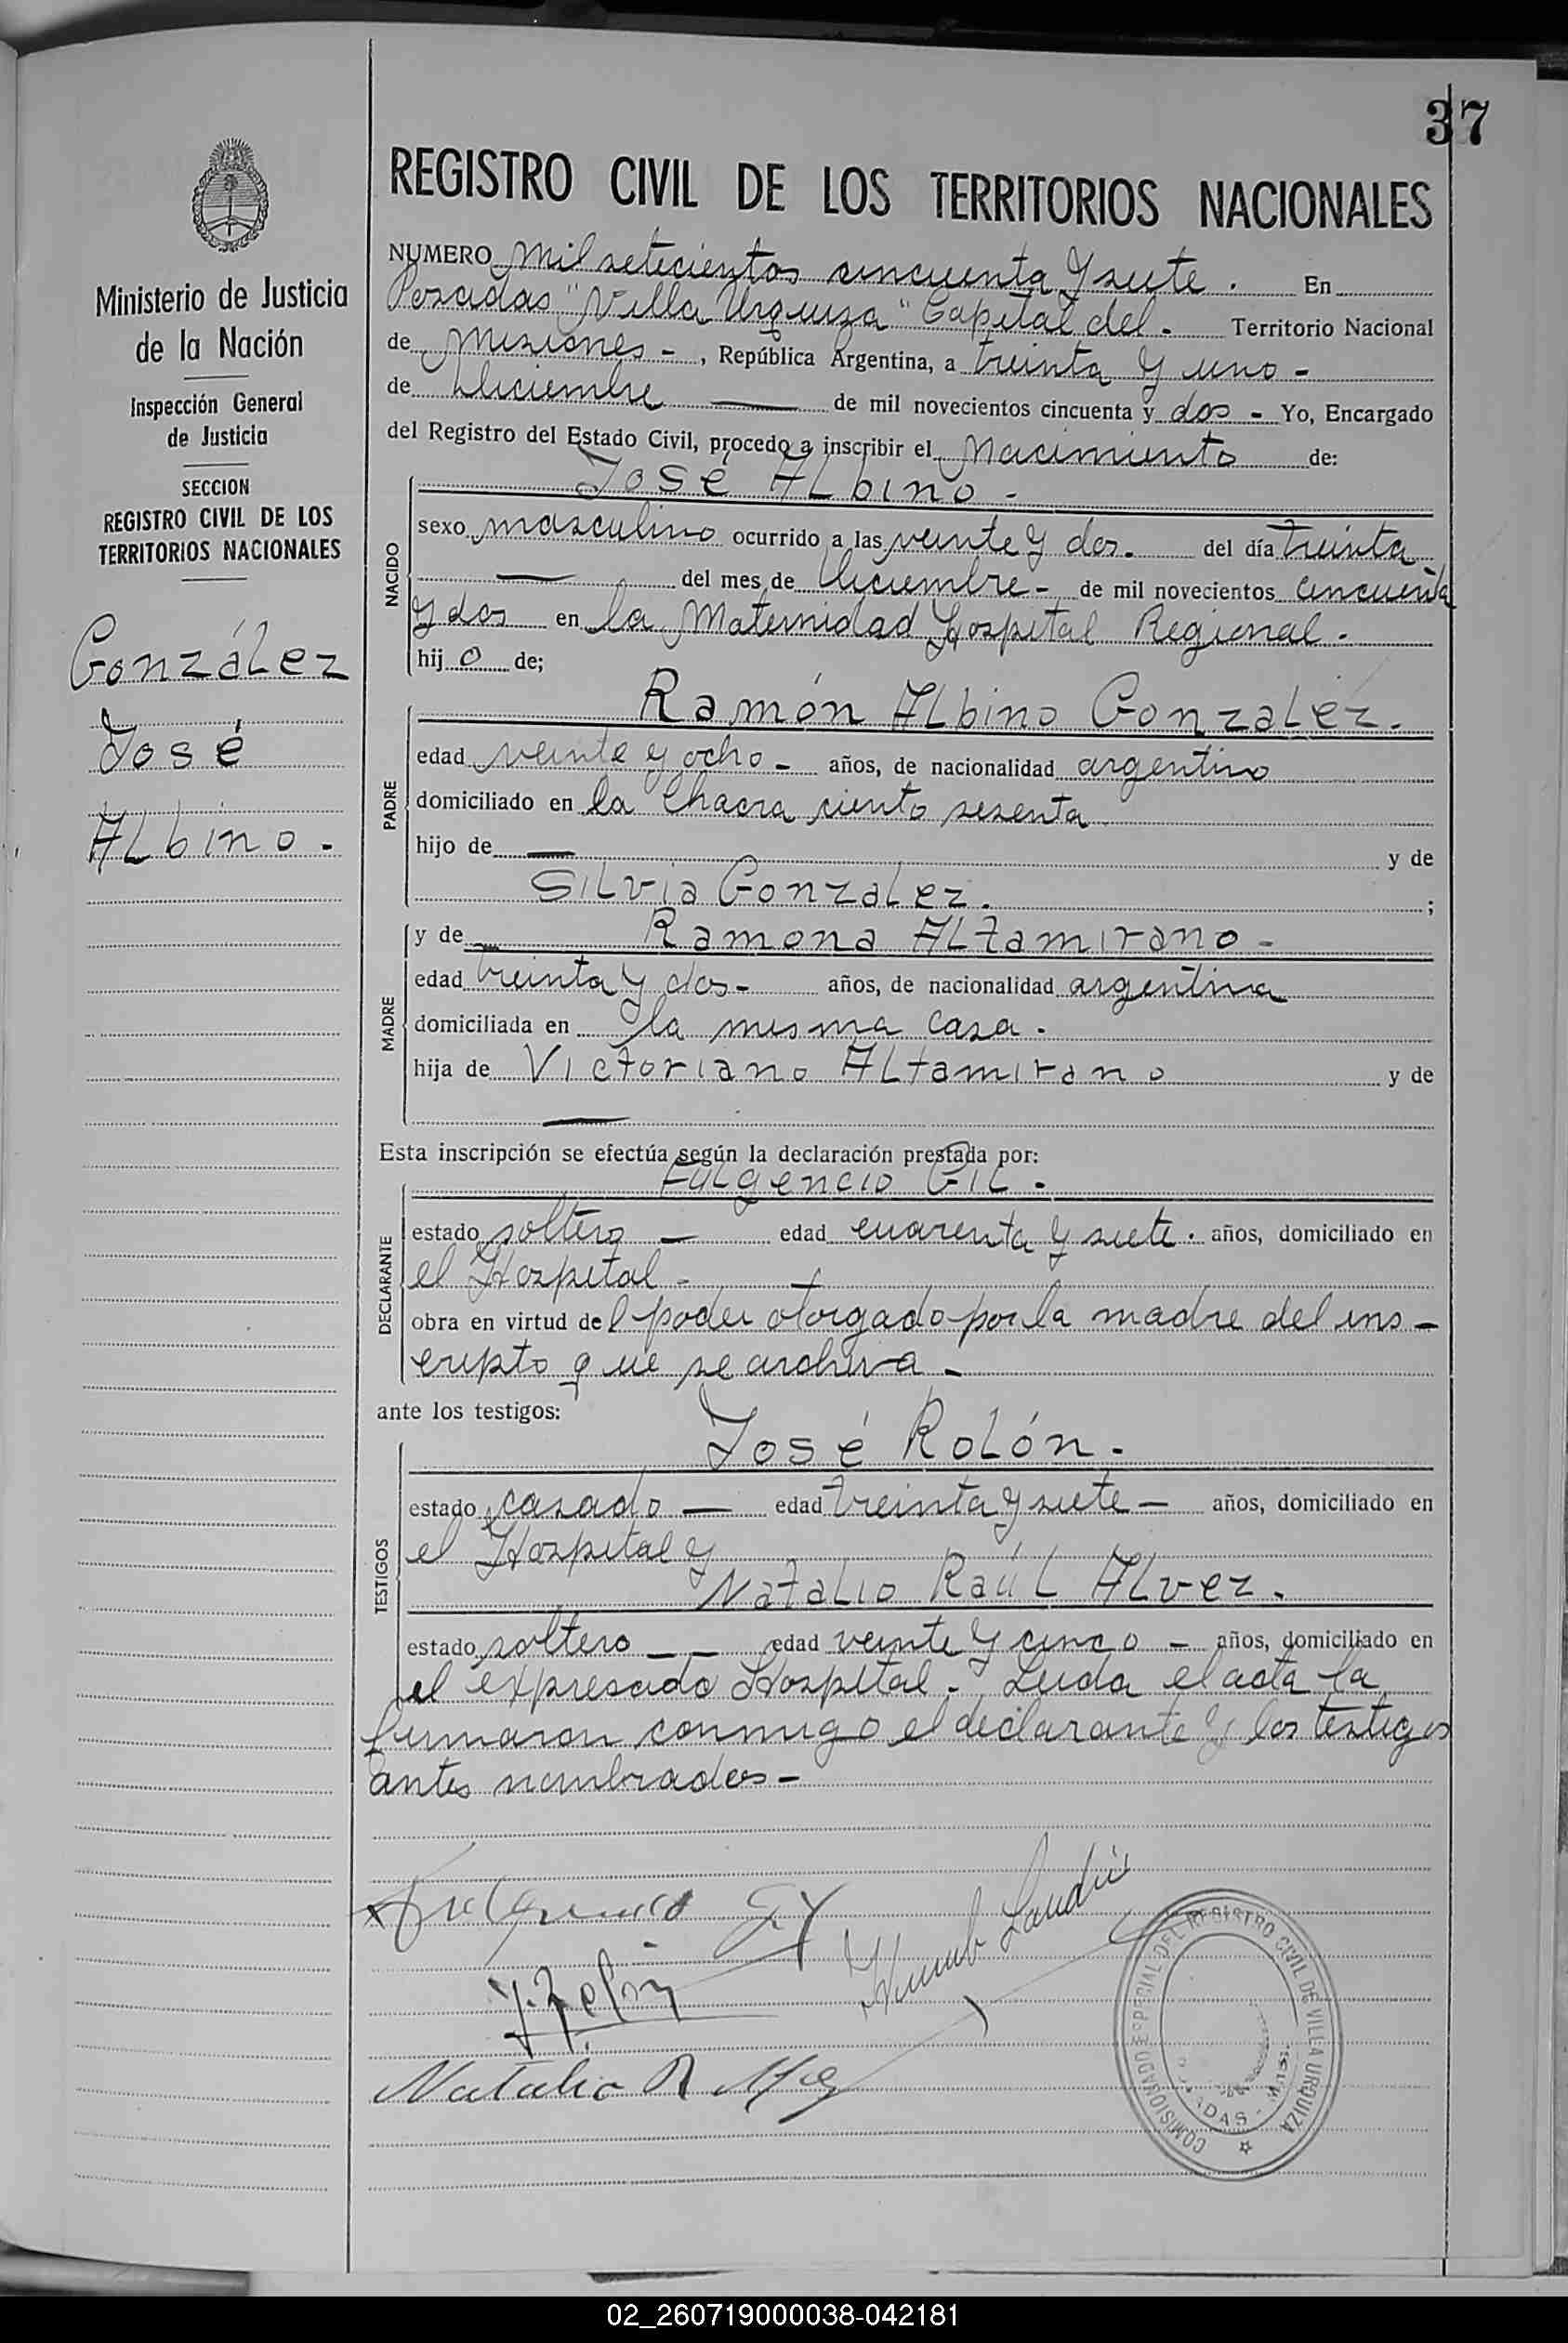 37
REGISTRO CIVIL DE LOS TERRITORIOS NACIONALES
Ministerio de Justicia
de la Nación
Inspección General
de Justicia
SECCION
REGISTRO CIVIL DE LOS
TERRITORIOS NACIONALES
González
José
Albino.
NUMERO Mil setecientos cincuenta y siete. En
Posadas "Villa Urquiza" Capital del. Territorio Nacional
de Misiones -, República Argentina, a treinta y uno -
de Diciembre — de mil novecientos cincuenta y dos - Yo, Encargado
del Registro del Estado Civil, procedo a inscribir el Nacimiento de:
NACIDO
José Albino -
sexo masculino ocurrido a las veinte y dos. del día treinta
— del mes de Diciembre - de mil novecientos cincuenta
y dos en la Maternidad Hospital Regional.
hijo de;
PADRE
Ramón Albino González.
edad veinte y ocho - años, de nacionalidad argentino
domiciliado en la Chacra ciento sesenta
hijo de — y de
Silvia Gonzalez. ;
MADRE
y de Ramona Altamirano -
edad treinta y dos - años, de nacionalidad argentina
domiciliada en la misma casa.
hija de Victoriano Altamirano y de
—
Esta inscripción se efectúa según la declaración prestada por:
DECLARANTE
Fulgencio Gil.
estado soltero — edad cuarenta y siete. años, domiciliado en
el Hospital -
obra en virtud del poder otorgado por la madre del ins-
cripto que se archiva -
ante los testigos:
TESTIGOS
José Rolón.
estado casado — edad treinta y siete — años, domiciliado en
el Hospital y
Natalio Raúl Alvez.
estado soltero — edad veinte y cinco - años, domiciliado en
el expresado Hospital. Leida el acta la
firmaron conmigo el declarante y los testigos
antes nombrados -
Fulgencio Gil
J. Rolón
Natalio R Alvez
COMISIONADO ESPECIAL DEL REGISTRO CIVIL DE VILLA URQUIZA
02_260719000038-042181